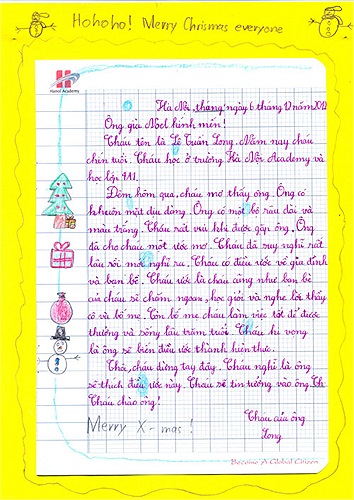 Hohoho! Merry Chrismas everyone
Hanoi Academy
Hà Nội, tháng ngày 6 tháng 12 năm 2012
Ông già Noel kính mến!
Cháu tên là Lê Tuấn Long. Năm nay cháu
chín tuổi. Cháu học ở trường Hà Nội Academy và
học lớp 4A1.
Đêm hôm qua, cháu mơ thấy ông. Ông có
khuôn mặt dịu dàng. Ông có một bộ râu dài và
màu trắng. Cháu rất vui khi được gặp ông. Ông
đã cho cháu một ước mơ. Cháu đã suy nghĩ rất
lâu rồi mới nghĩ ra. Cháu có điều ước về gia đình
và bạn bè. Cháu ước là cháu cùng như bạn bè
của cháu sẽ chăm ngoan, học giỏi và nghe lời thầy
cô và bố mẹ. Còn bố mẹ cháu làm việc tốt để được
thưởng và sống lâu trăm tuổi. Cháu hi vọng
là ông sẽ biến điều ước thành hiện thực.
Thôi, cháu dừng tay đây. Cháu nghĩ là ông
sẽ thích điều ước này. Cháu sẽ tin tưởng vào ông.
Cháu chào ông!
Cháu của ông
Merry X-mas!
Long
Become A Global Citizen